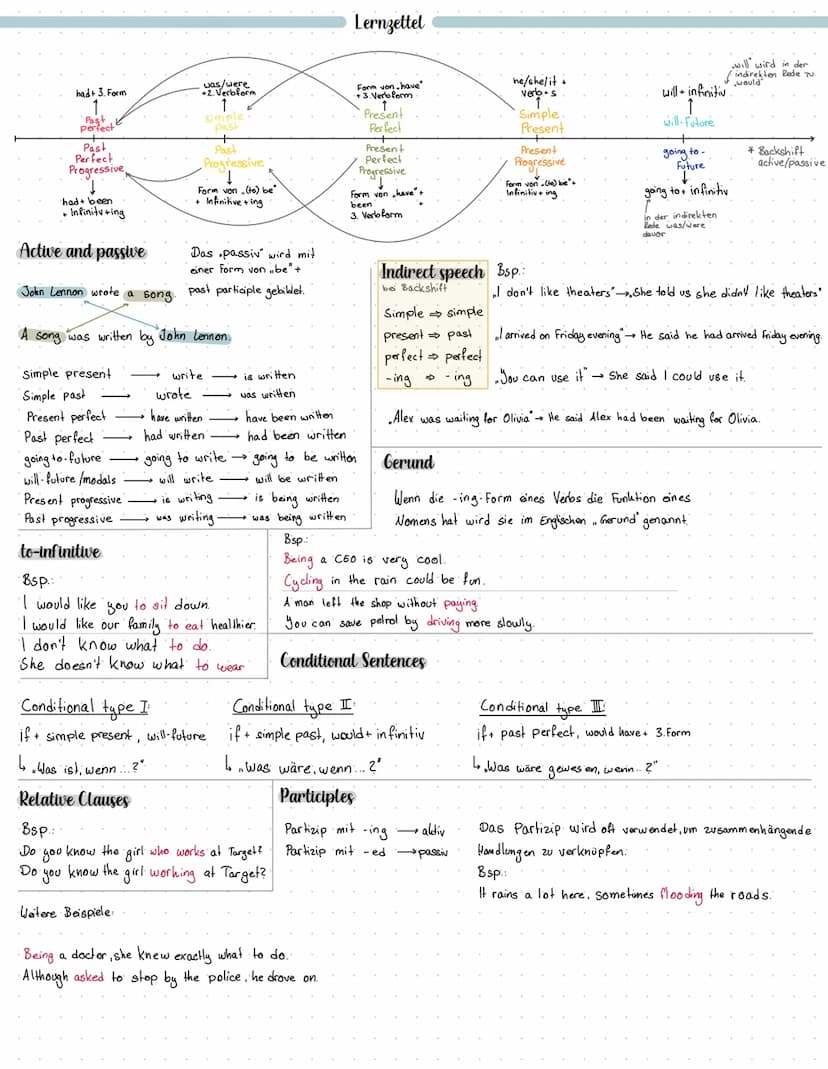 Lernzettel
„will" wird in der
indirekten Rede zu
„would"
had + 3. Form
was/were
+2. Verbform
Form von „have"
+ 3. Verbform
he/she/it +
verb + s
will + infinitiv
Past
perfect
simple
past
Present
Perfect
Simple
Present
will-future
Past
Perfect
Progressive
Past
Progressive
Present
Perfect
Progressive
Present
Progressive
going to-
Future
* Backshift
active/passive
had + been
+ Infinitiv + ing
Form von „(to) be"
+ Infinitive + ing
Form von „have" +
been +
3. Verbform
Form von „(to) be" +
Infinitiv + ing
going to + infinitiv
in der indirekten
Rede was/were
davor
Active and passive
Das „passiv" wird mit
einer Form von „be" +
past participle gebildet.
John Lennon wrote a song.
A song was written by John Lennon.
Simple present → write → is written
Simple past → wrote → was written
Present perfect → have written → have been written
Past perfect → had written → had been written
going to-future → going to write → going to be written
will-future/modals → will write → will be written
Present progressive → is writing → is being written
Past progressive → was writing → was being written
Indirect speech
bei Backshift
Simple ⇒ simple
present ⇒ past
perfect ⇒ perfect
-ing ⇒ -ing
Bsp.:
„I don't like theaters" → „She told us she didn't like theaters"
„I arrived on Friday evening" → He said he had arrived Friday evening.
„You can use it" → She said I could use it.
„Alex was waiting for Olivia" → He said Alex had been waiting for Olivia.
Gerund
Wenn die -ing-Form eines Verbs die Funktion eines
Nomens hat wird sie im Englischen „Gerund" genannt.
Bsp.:
Being a CEO is very cool.
Cycling in the rain could be fun.
A man left the shop without paying.
You can save petrol by driving more slowly.
to-infinitive
Bsp.:
I would like you to sit down.
I would like our family to eat healthier.
I don't know what to do.
She doesn't know what to wear
Conditional Sentences
Conditional type I:
if + simple present, will-future
↳ „Was ist, wenn...?"
Conditional type II:
if + simple past, would + infinitiv
↳ „Was wäre, wenn...?"
Conditional type III:
if + past perfect, would have + 3. Form
↳ „Was wäre gewesen, wenn..?"
Relative Clauses
Bsp.:
Do you know the girl who works at Target?
Do you know the girl working at Target?
Participles
Partizip mit -ing → aktiv
Partizip mit -ed → passiv
Das Partizip wird oft verwendet, um zusammenhängende
Handlungen zu verknüpfen.
Bsp.:
It rains a lot here, sometimes flooding the roads.
Weitere Beispiele:
Being a doctor, she knew exactly what to do.
Although asked to stop by the police, he drove on.